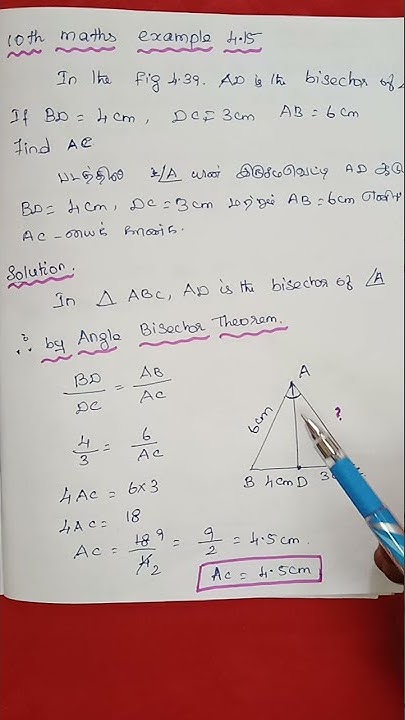 10th maths example 4.15
In the fig 4.39. AD is the bisector of
If BD = 4cm, DC = 3cm AB = 6cm
Find AC
படத்தில் ∠A யின் இருசமவெட்டி AD ஆகு
BD = 4cm, DC = 3cm மற்றும் AB = 6cm எனில்
AC - யைக் காண்க.
Solution.
In △ ABC, AD is the bisector of ∠A
∴ by Angle Bisector Theorem.
BD/DC = AB/AC
4/3 = 6/AC
4AC = 6×3
4AC = 18
AC = 18 9/4 2 = 9/2 = 4.5cm.
AC = 4.5cm
A
6cm ?
B 4cm D